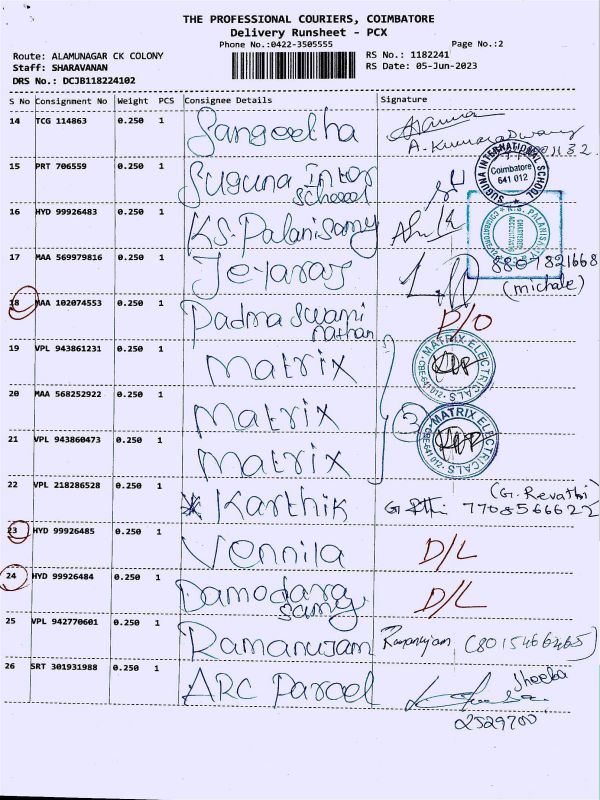 THE PROFESSIONAL COURIERS, COIMBATORE
Delivery Runsheet - PCX
Phone No.:0422-3505555 Page No.:2
Route: ALAMUNAGAR CK COLONY RS No.: 1182241
Staff: SHARAVANAN RS Date: 05-Jun-2023
DRS No.: DCJB118224102
S No Consignment No Weight PCS Consignee Details Signature
14 TCG 114863 0.250 1 Sangeetha
A. Kumaraswamy
15 PRT 706559 0.250 1 Suguna Inter
School
SUGUNA INTERNATIONAL SCHOOL
Coimbatore
641 012
16 HYD 99926483 0.250 1 KS. Palanisamy
CHARTERED
ACCOUNTANT
17 MAA 569979816 0.250 1 Jeyaraj 8807821668
(michale)
18 MAA 102074553 0.250 1 Padma Swami
nathan D/O
19 VPL 943861231 0.250 1 Matrix
MATRIX ELECTRICALS
CBE-641 012
20 MAA 568252922 0.250 1 Matrix
3
MATRIX ELECTRICALS
CBE-641 012
21 VPL 943860473 0.250 1 Matrix
22 VPL 218286528 0.250 1 Karthik (G. Revathi)
7708566622
23 HYD 99926485 0.250 1 Vennila D/L
24 HYD 99926484 0.250 1 Damodara
samy D/L
25 VPL 942770601 0.250 1 Ramanujam Ramanujam (8015466465)
26 SRT 301931988 0.250 1 ARC Parcel Sheeba
2529700